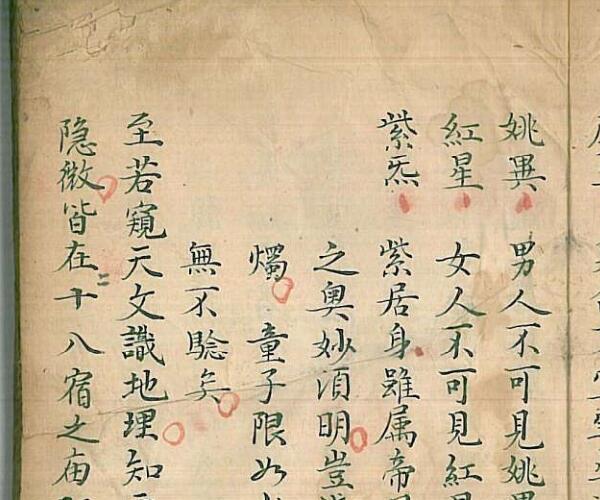 姚異 男人不可見姚
紅星 女人不可見紅
紫炁 紫居身雖属帝
之奥妙湏明豈
燭童子限如
無不騐矣
至若窺天文識地理知
隐微皆在二十八宿之庙